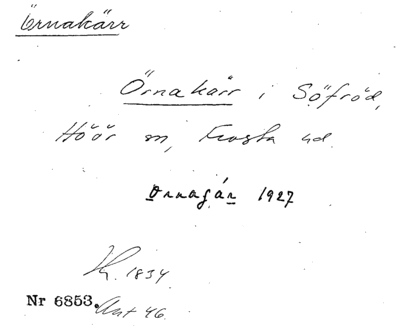 Örnakärr
Örnakärr i Söfröd,
Höör sn, Frosta hd.
Ornagár 1927
1834
Nr 6853. Ant 46